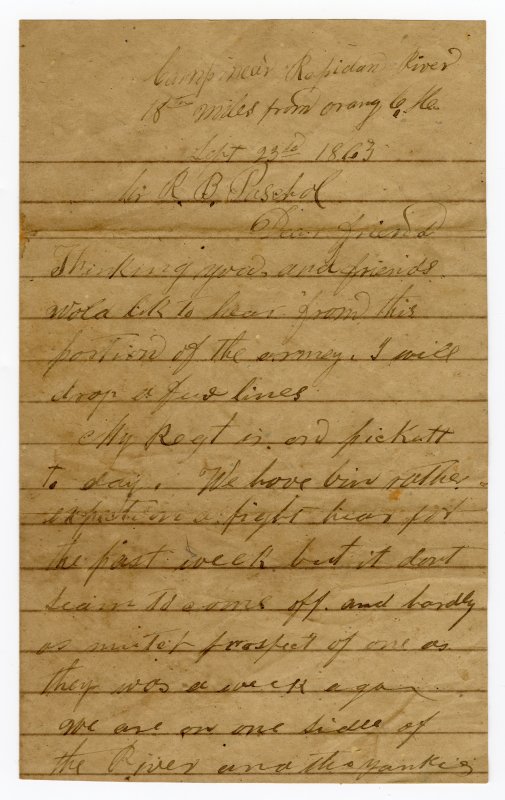 Camp near Rapidan River
18th miles from orang C, He.
Sept 23rd 1863
Mr R. B. Paschal
Dear friend
Thinking you and friends
wold lik to hear from this
portion of the armey. I will
drop a few lines
My Regt is on pickett
to day. We have bin rather
expecten a fight hear for
the past week but it dont
seam to come off and hardly
as mutch prospect of one as
they was a week ago
we are on one side of
the River and the yankies